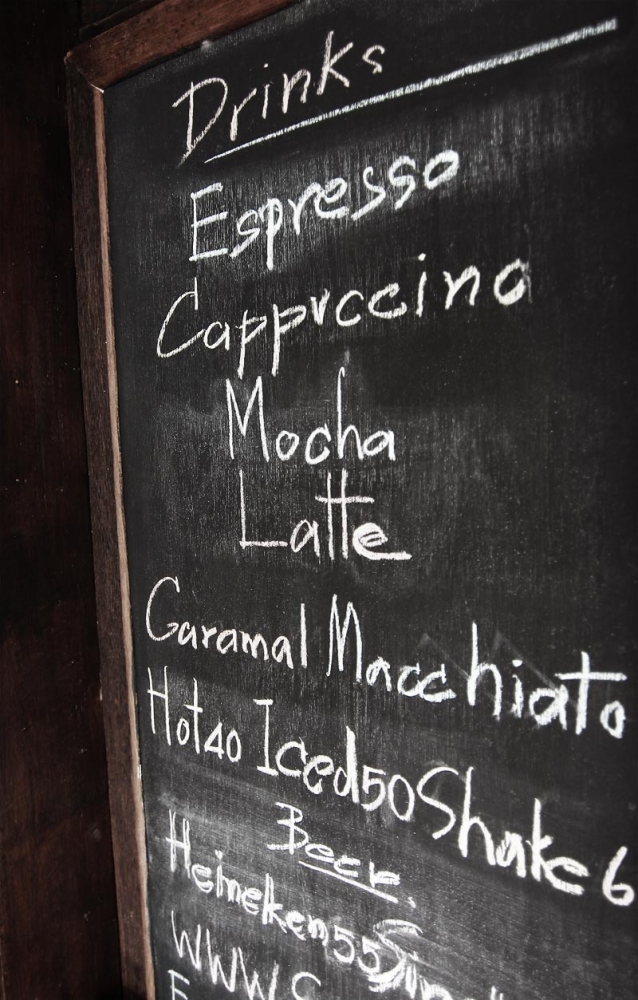 Drinks
Espresso
Cappuccino
Mocha
Latte
Caramal Macchiato
Hot 40 Iced 50 Shake 6
Beer
Heineken 55